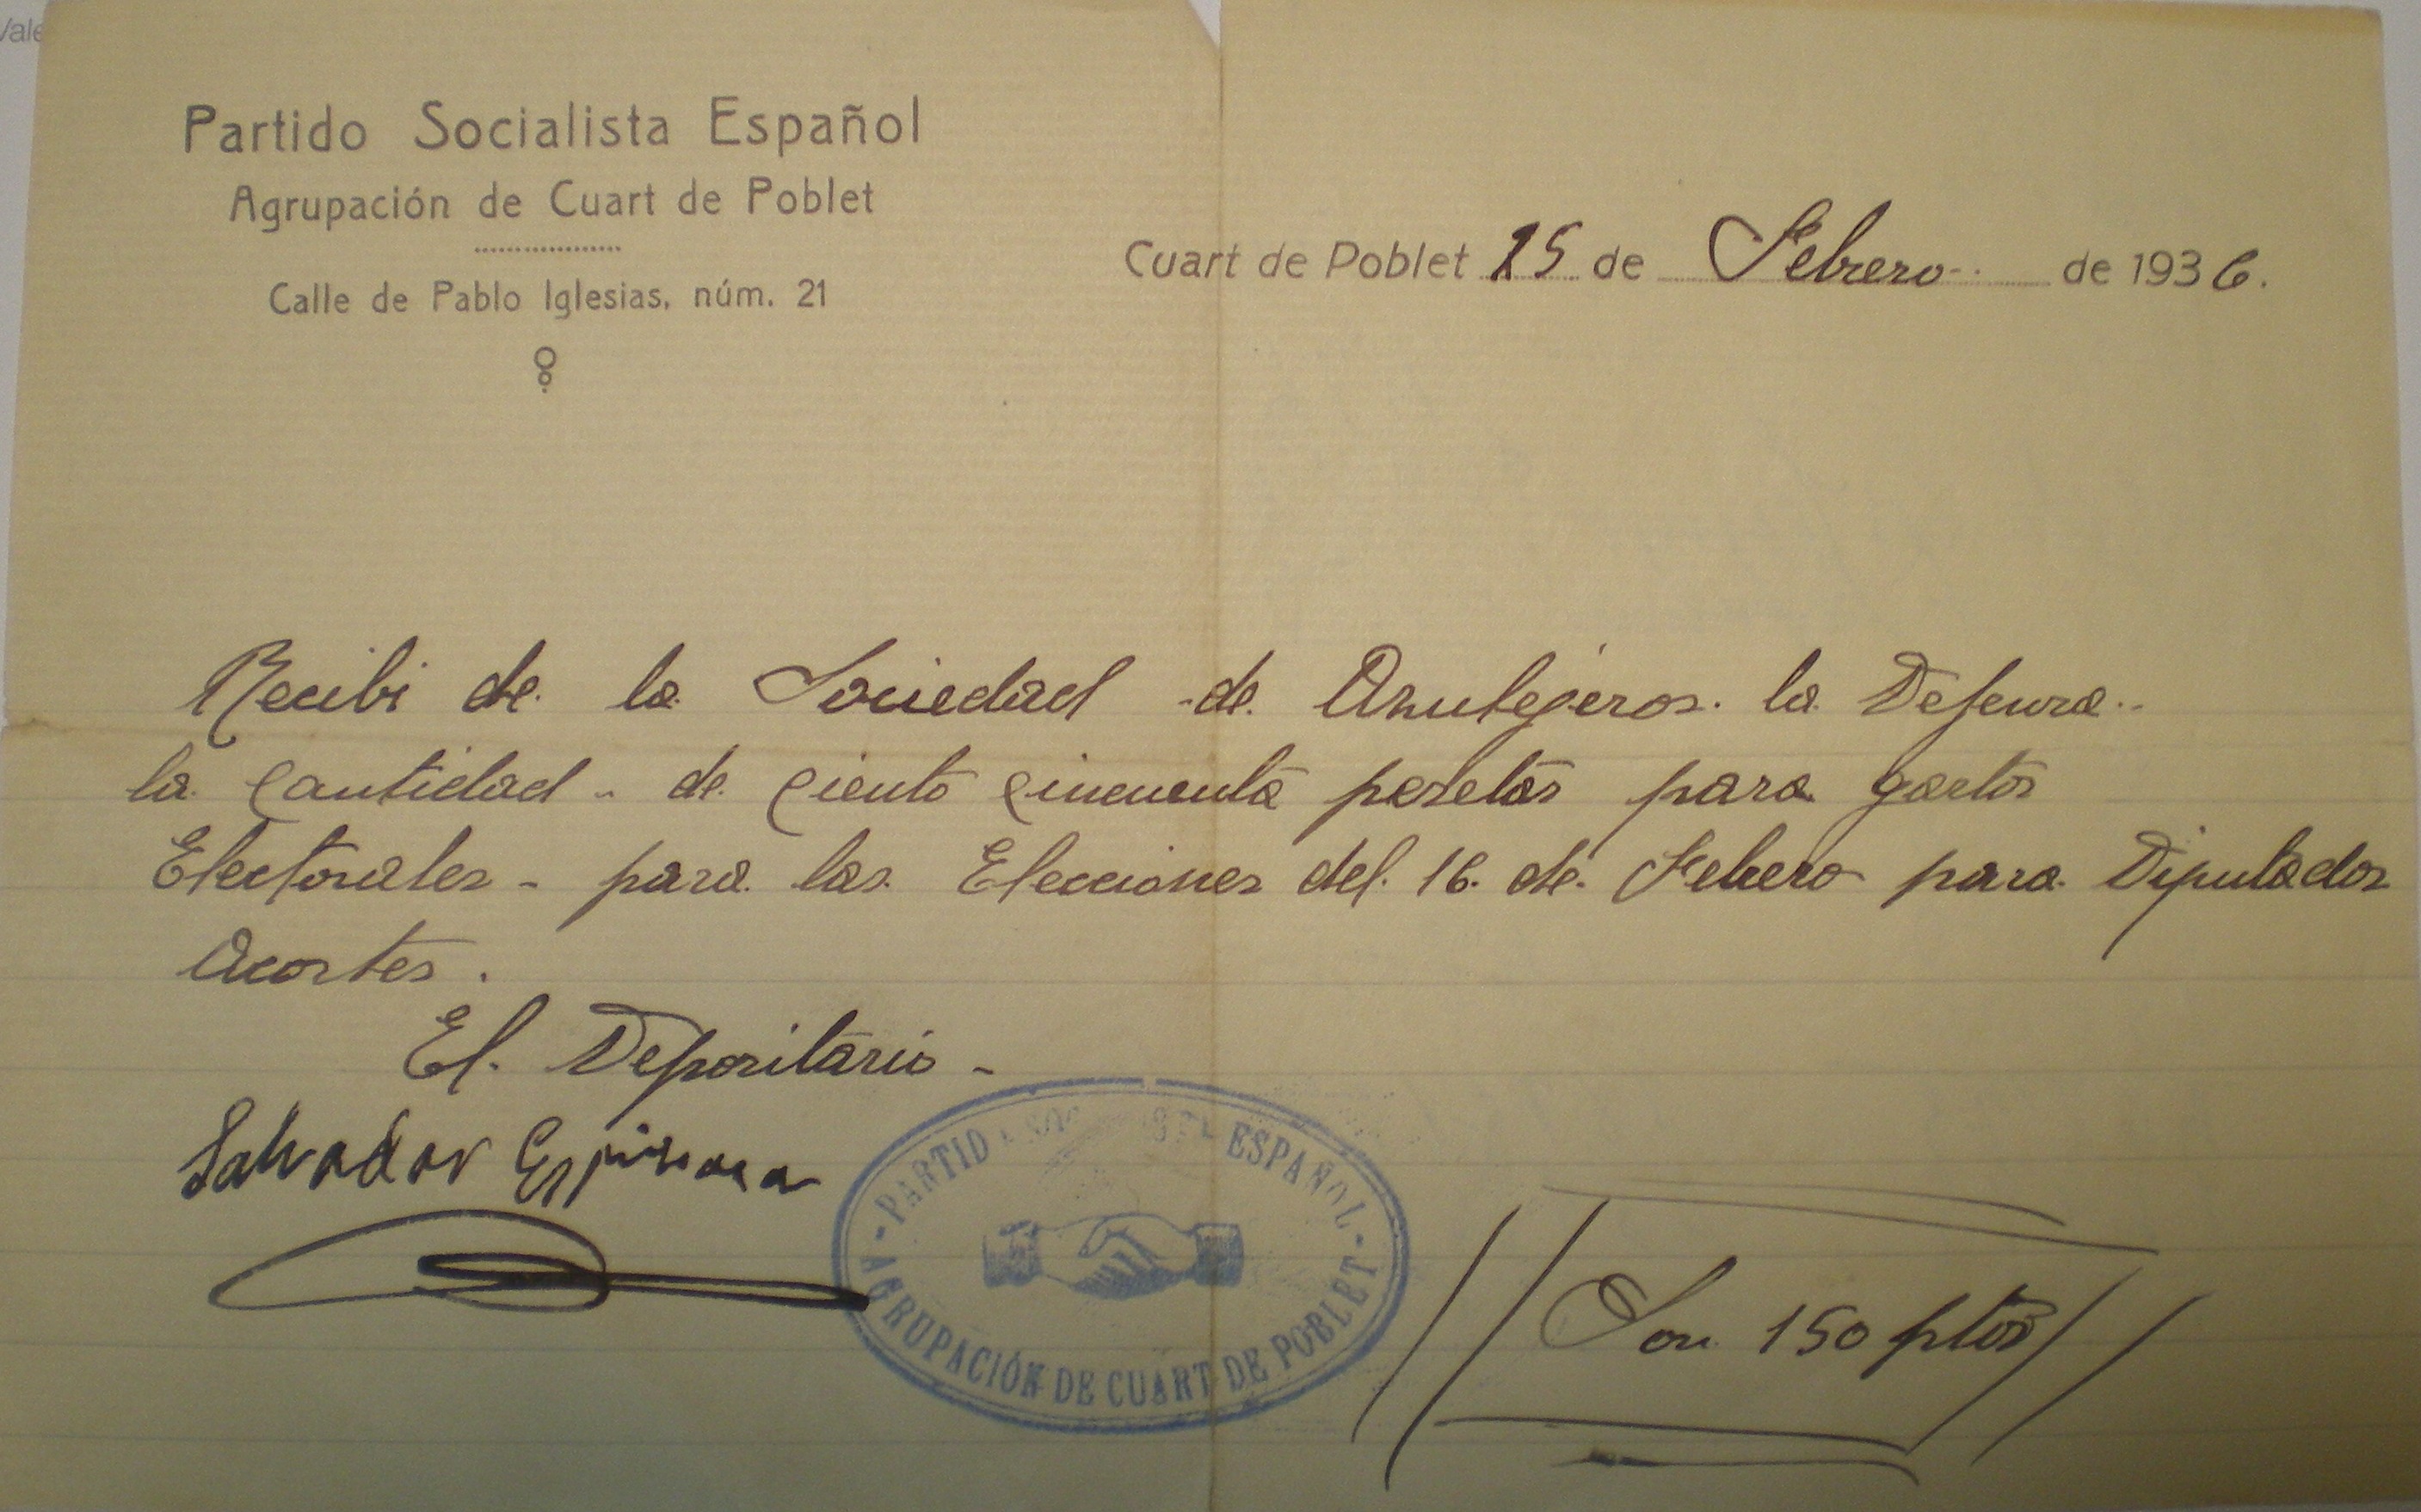 Vale
Partido Socialista Español
Agrupación de Cuart de Poblet
Calle de Pablo Iglesias, núm. 21
Cuart de Poblet 15 de Febrero de 1936.
Recibi de la Sociedad de Azulejeros la Defensa
la Cantidad de Ciento Cincuenta pesetas para gastos
Electorales - para las Elecciones del 16 de Febrero para Diputados
Acortes.
El Depositario -
Salvador Espinosa
- PARTIDO ESPAÑOL -
AGRUPACIÓN DE CUART DE POBLET
Son 150 ptas